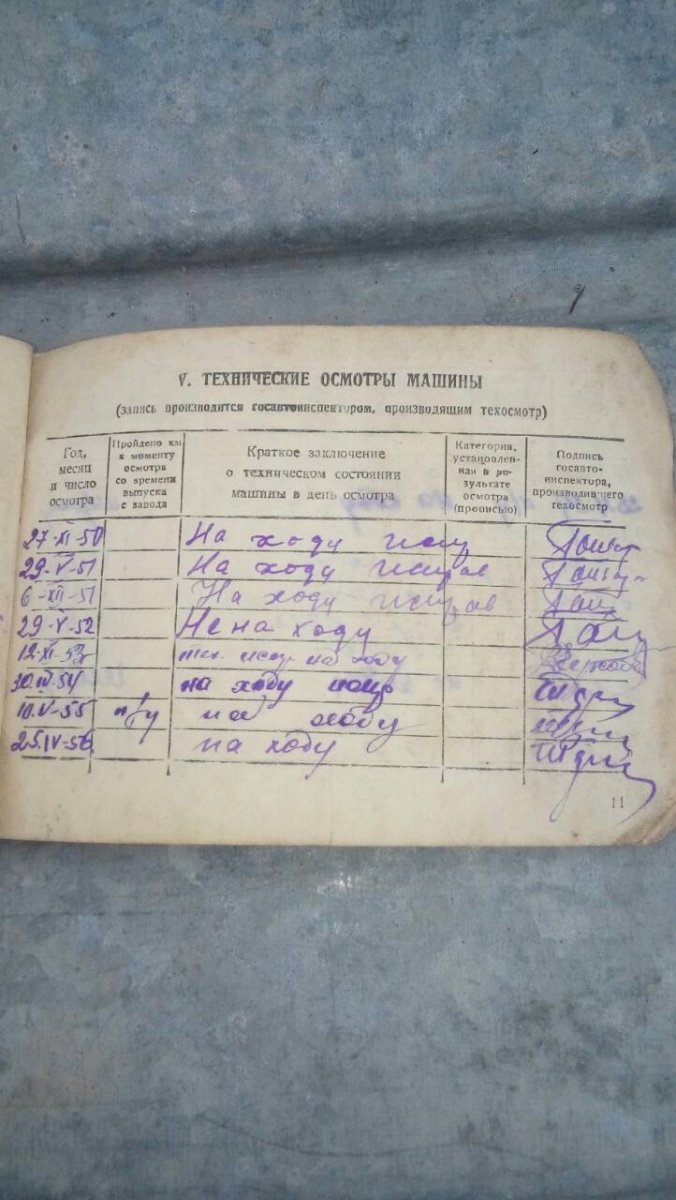 V. ТЕХНИЧЕСКИЕ ОСМОТРЫ МАШИНЫ
(запись производится госавтоинспектором, производящим техосмотр)
Год, месяц и число осмотра
Пройдено км к моменту осмотра со времени выпуска с завода
Краткое заключение о техническом состоянии машины в день осмотра
Категория, установленная в результате осмотра (прописью)
Подпись госавтоинспектора, производившего техосмотр
27-XI-50 На ходу испр
29-V-51 На ходу исправ
6-XII-51 На ходу исправ
29-V-52 Не на ходу
12-XI-53 тех. испр на ходу
30.IV-54 на ходу испр
10.V-55 на ходу
25.IV-56 на ходу
11